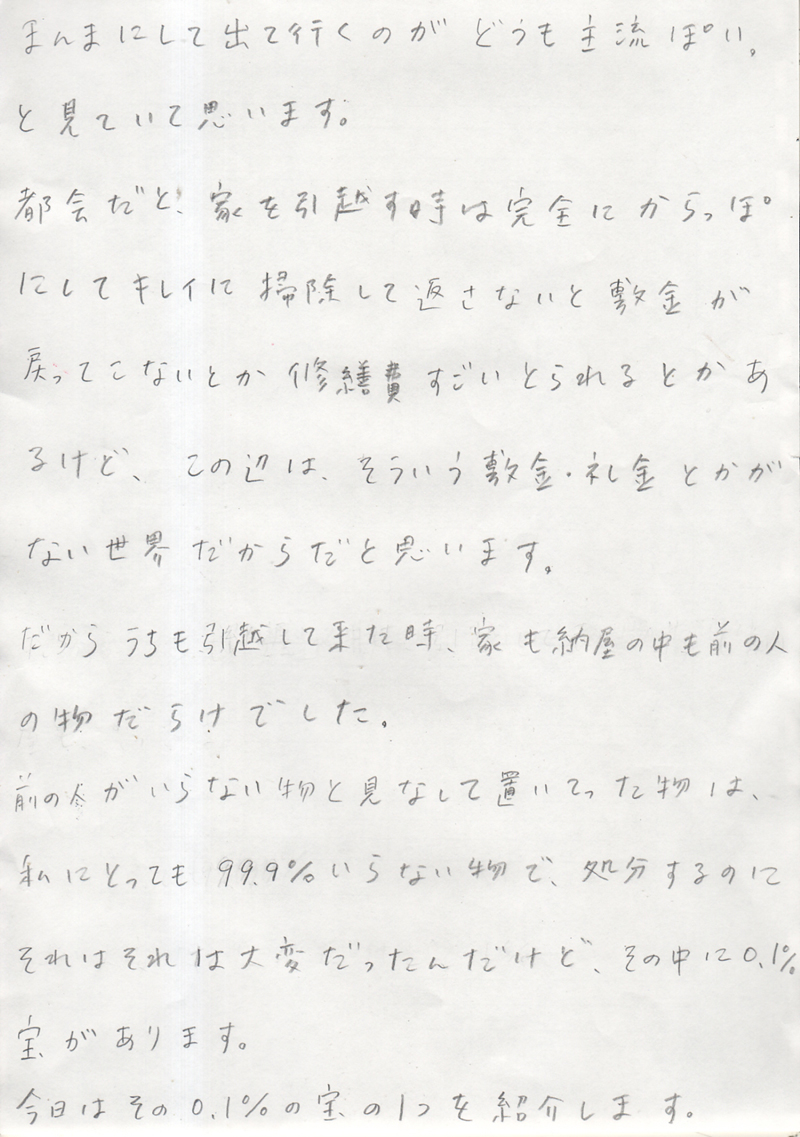 まんまにして出て行くのがどうも主流ぽい。
と見ていて思います。
都会だと、家を引越す時は完全にからっぽ
にしてキレイに掃除して返さないと敷金が
戻ってこないとか修繕費すごいとられるとかあ
るけど、この辺は、そういう敷金・礼金とかが
ない世界だからだと思います。
だからうちも引越して来た時、家も納屋の中も前の人
の物だらけでした。
前の人がいらない物と見なして置いてった物は、
私にとっても99.9%いらない物で、処分するのに
それはそれは大変だったんだけど、その中に0.1%
宝があります。
今日はその0.1%の宝の1つを紹介します。